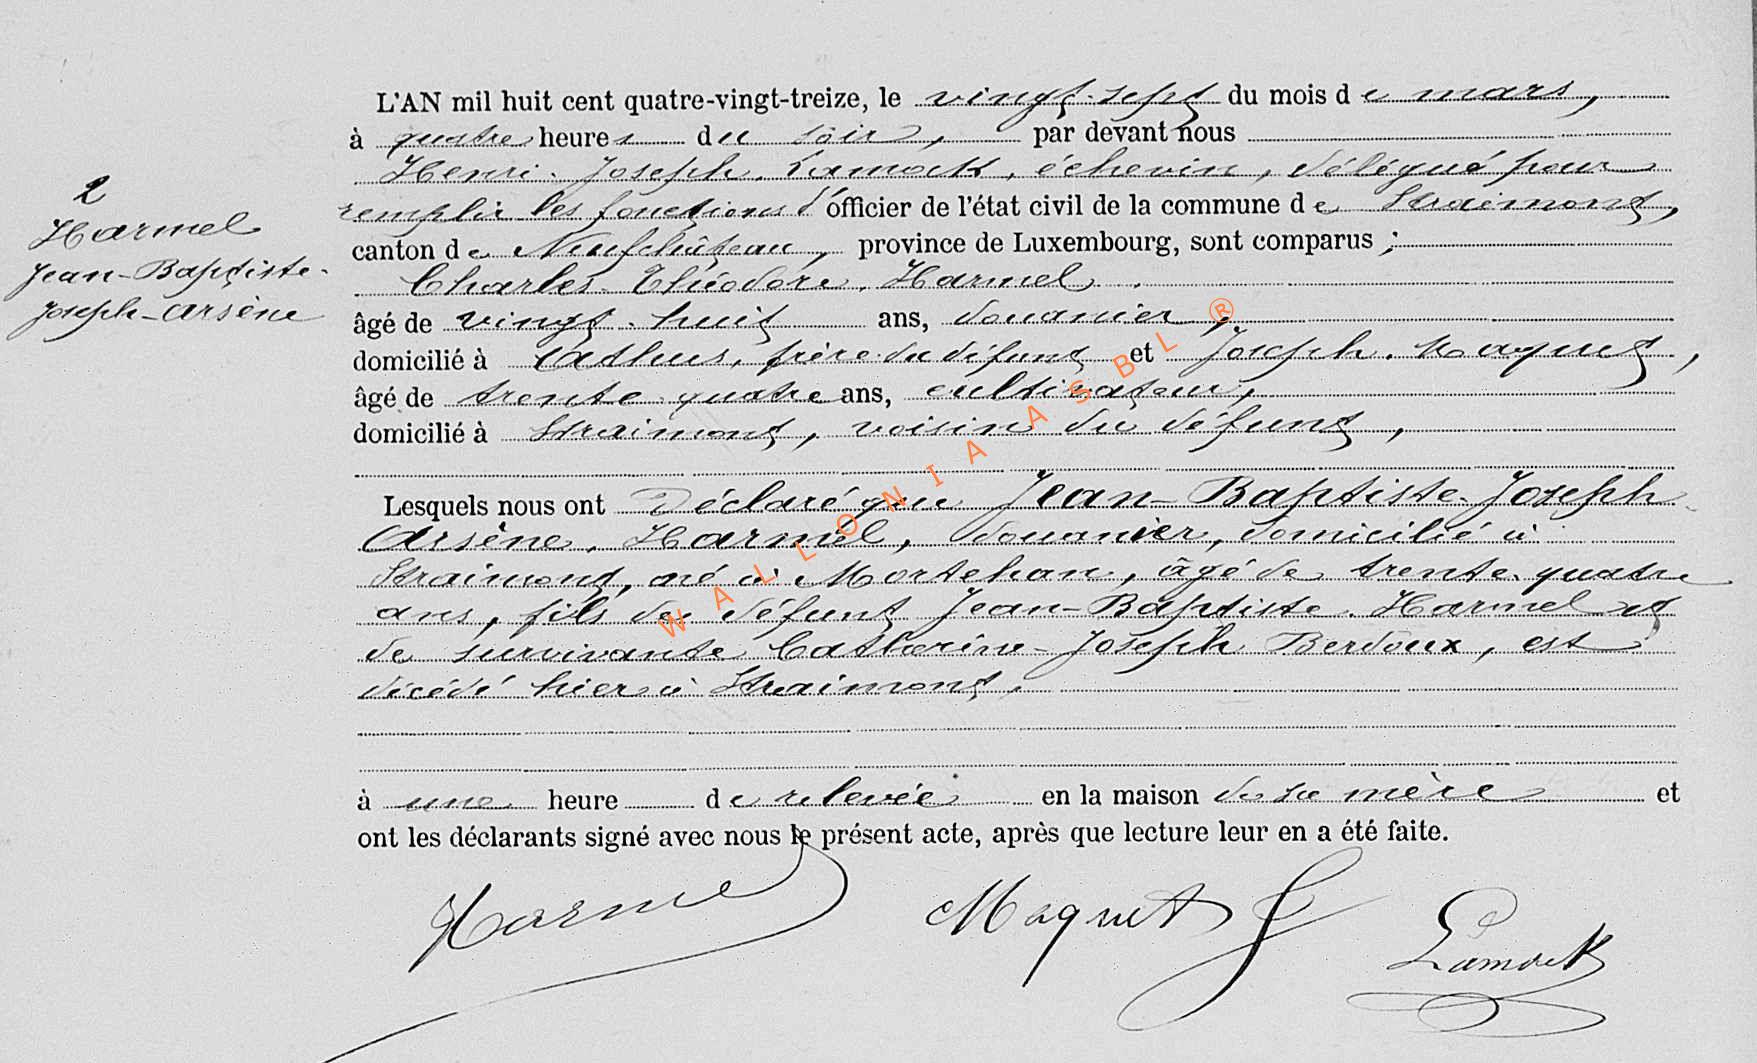 L'AN mil huit cent quatre-vingt-treize, le vingt-sept du mois de mars,
à quatre heures du soir, par devant nous
Henri-Joseph Lamock, échevin, délégué pour
remplir les fonctions d'officier de l'état civil de la commune de Straimont,
canton de Neufchâteau, province de Luxembourg, sont comparus :
Charles-Théodore Harmel
âgé de vingt-huit ans, douanier,
domicilié à Athus, frère du défunt et Joseph Maquet,
âgé de trente-quatre ans, cultivateur,
domicilié à Straimont, voisin du défunt,
Lesquels nous ont Déclaré que Jean-Baptiste-Joseph
Arsène, Harmel, douanier, domicilié à
Straimont, né à Mortehan, âgé de trente-quatre
ans, fils de défunt Jean-Baptiste Harmel et
de survivante Catherine-Joseph Berdoux, est
décédé hier à Straimont,
à une heure de relevée en la maison de sa mère et
ont les déclarants signé avec nous le présent acte, après que lecture leur en a été faite.
2
Harmel
Jean-Baptiste-
Joseph-Arsène
Harmel Maquet J Lamock
WALLONIA ASBL ®